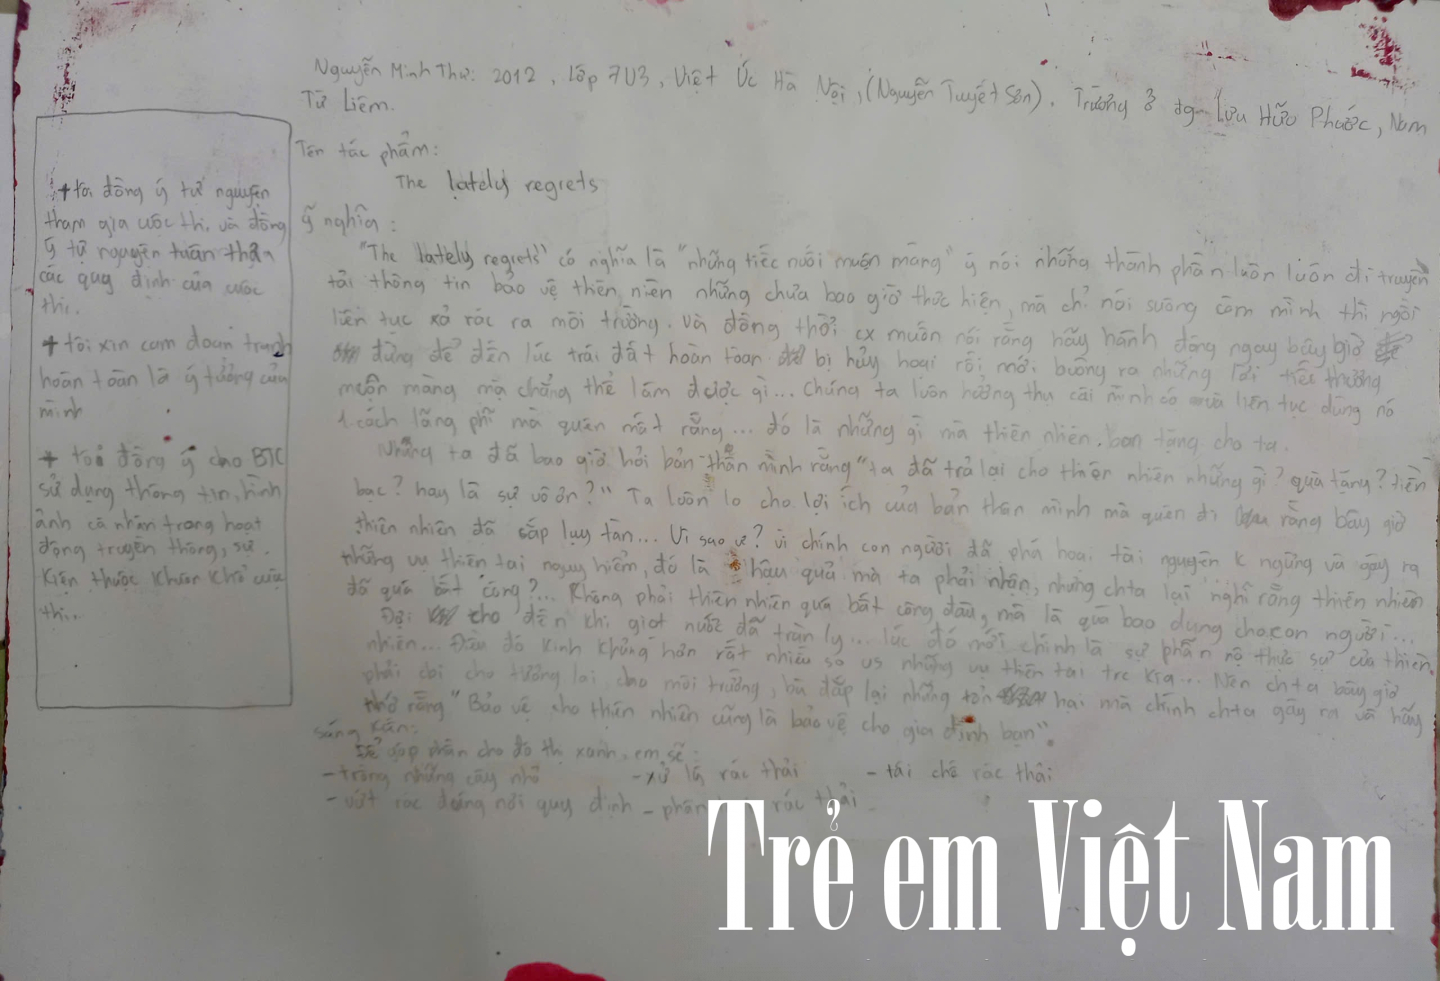 Nguyễn Minh Thư: 2012, Lớp 7U3, Việt Úc Hà Nội, (Nguyễn Tuyết Sơn). Trường ở đg Lưu Hữu Phước, Nam
Từ Liêm.
Tên tác phẩm:
The lately regrets
ý nghĩa:
"The lately regrets" có nghĩa là "những tiếc nuối muộn màng" ý nói những thành phần luôn luôn đi truyền
tải thông tin bảo vệ thiên niên nhưng chưa bao giờ thực hiện, mà chỉ nói suông còn mình thì ngồi
liên tục xả rác ra môi trường. Và đồng thời cx muốn nói rằng hãy hành động ngay bây giờ
đừng để đến lúc trái đất hoàn toàn bị hủy hoại rồi mới buông ra những lời tiếc thương
muộn màng mà chẳng thể làm được gì... Chúng ta luôn hưởng thụ cái mình có và liên tục dùng nó
1 cách lãng phí mà quên mất rằng... đó là những gì mà thiên nhiên ban tặng cho ta.
Nhưng ta đã bao giờ hỏi bản thân mình rằng "ta đã trả lại cho thiên nhiên những gì? quà tặng? tiền
bạc? hay là sự vô ơn?" Ta luôn lo cho lợi ích của bản thân mình mà quên đi rằng bây giờ
thiên nhiên đã sắp lụy tàn... Vì sao ư? vì chính con người đã phá hoại tài nguyên k ngừng và gây ra
những vụ thiên tai nguy hiểm, đó là hậu quả mà ta phải nhận, nhưng chta lại nghĩ rằng thiên nhiên
đã quá bất công?... Không phải thiên nhiên quá bất công đâu, mà là quá bao dung cho con người...
Đợi cho đến khi giọt nước đã tràn ly... lúc đó mới chính là sự phẫn nộ thực sự của thiên
nhiên... Điều đó kinh khủng hơn rất nhiều so vs những vụ thiên tai trc kia... Nên chta bây giờ
phải coi cho tương lai cho môi trường, bù đắp lại những tổn hại mà chính chta gây ra và hãy
nhớ rằng "Bảo vệ cho thiên nhiên cũng là bảo vệ cho gia đình bạn".
sáng kiến:
Để góp phần cho đô thị xanh, em sẽ:
- trồng những cây nhỏ - xử lý rác thải - tái chế rác thải
- vứt rác đúng nơi quy định - phân rác thải
+ tôi đồng ý tự nguyện
tham gia cuộc thi và đồng
ý tự nguyện tuân thủ
các quy định của cuộc
thi.
+ tôi xin cam đoan tranh
hoàn toàn là ý tưởng của
mình
+ tôi đồng ý cho BTC
sử dụng thông tin, hình
ảnh cá nhân trong hoạt
động truyền thông, sự
kiện thuộc khuôn khổ cuộc
thi.
Trẻ em Việt Nam